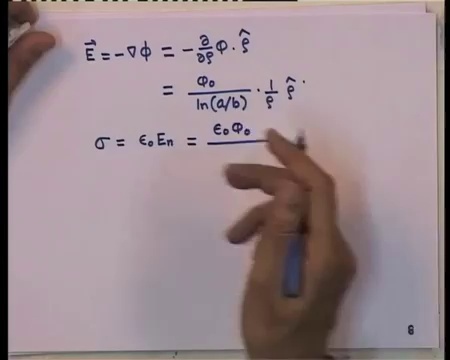 E⃗ = -∇ϕ = - ∂/∂ρ Φ. ρ̂
= Φ₀/ln(a/b) · 1/ρ ρ̂ ·
σ = ϵ₀ Eₙ = ϵ₀ Φ₀
6